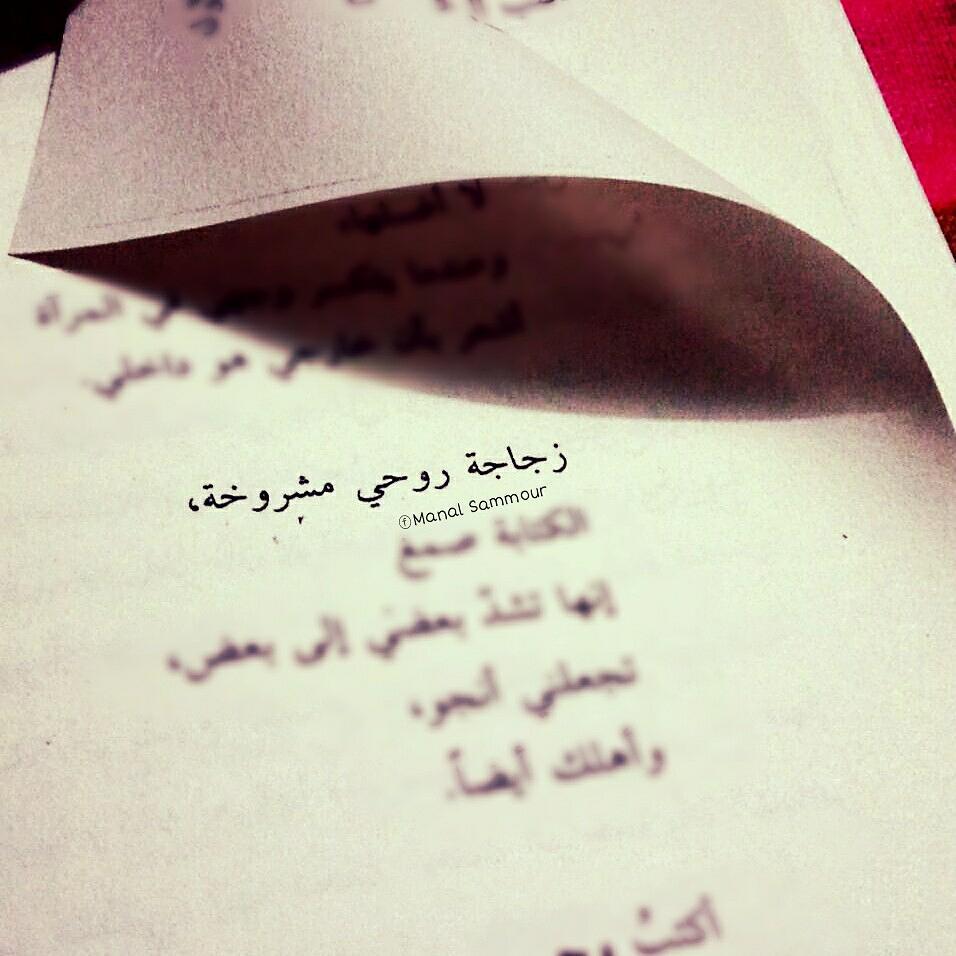 لا أضلها،
وعندما ينكسر وجهي في المرآة
أشعر بأن خارجي هو داخلي.
زجاجة روحي مشروخة،
ⓕManal Sammour
الكتابة صمغ
إنها تشدّ بعضي إلى بعض،
تجعلني أنجو،
وأهلك أيضاً.
أكتبُ